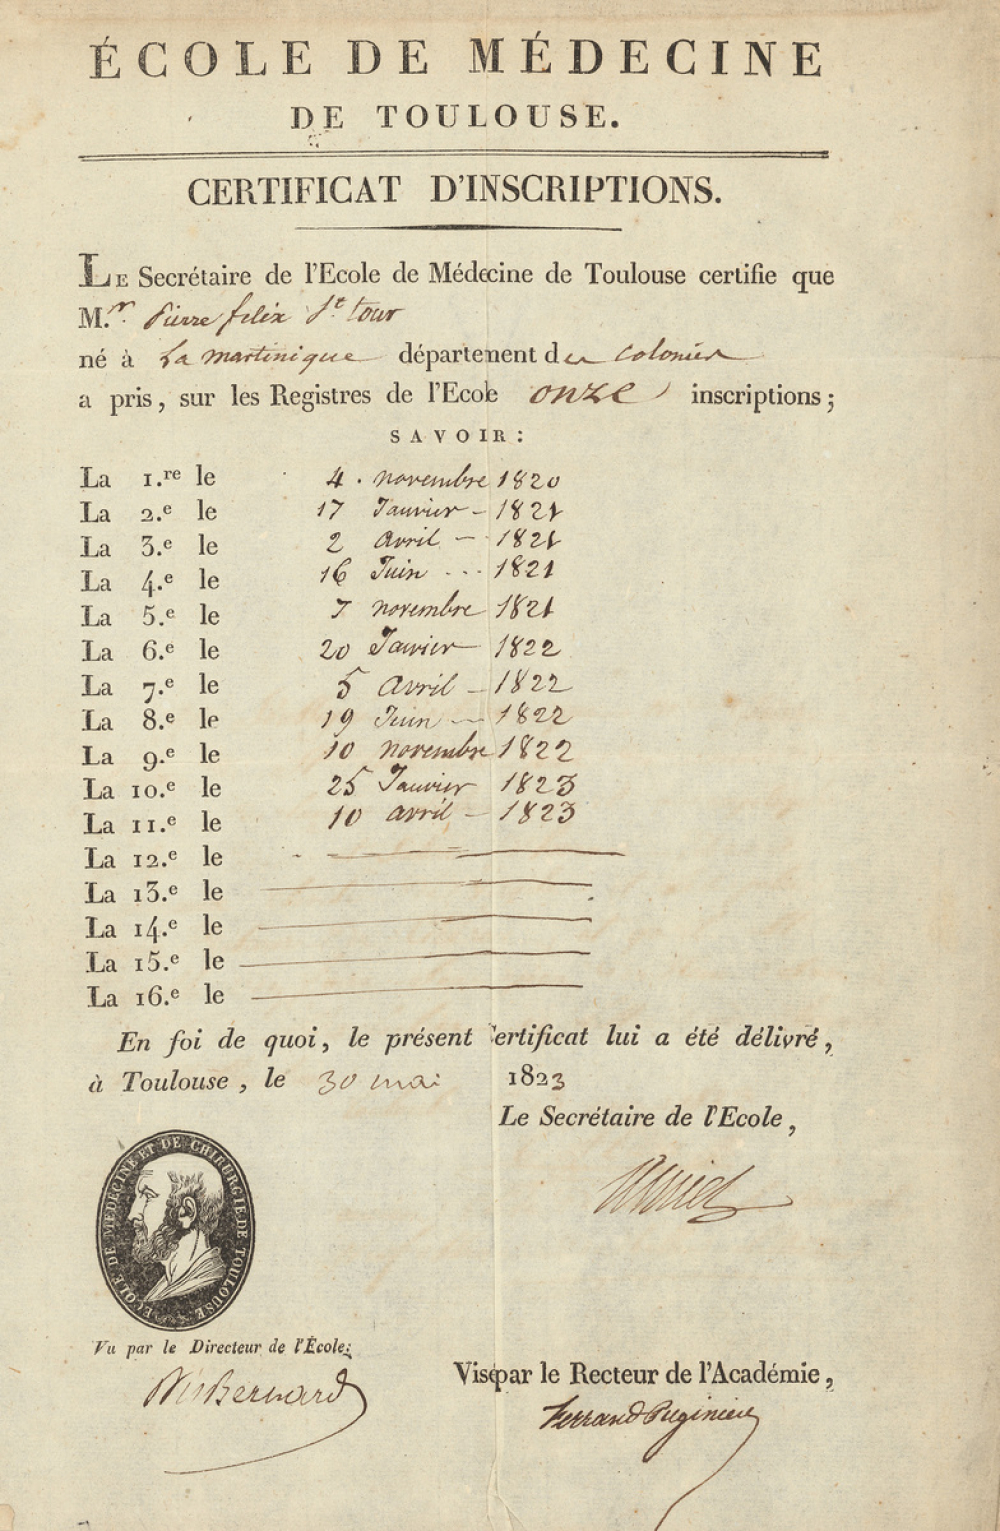 ÉCOLE DE MÉDECINE
DE TOULOUSE.
CERTIFICAT D'INSCRIPTIONS.
LE Secrétaire de l'Ecole de Médecine de Toulouse certifie que
M.r Pierre felix St tour
né à La martinique département des colonies
a pris, sur les Registres de l'Ecole onze inscriptions;
SAVOIR:
La 1.re le 4. novembre 1820
La 2.e le 17 Janvier - 1821
La 3.e le 2 avril - 1821
La 4.e le 16 Juin ... 1821
La 5.e le 7 novembre 1821
La 6.e le 20 Janvier 1822
La 7.e le 5 avril - 1822
La 8.e le 19 Juin - 1822
La 9.e le 10 novembre 1822
La 10.e le 25 Janvier 1823
La 11.e le 10 avril - 1823
La 12.e le
La 13.e le
La 14.e le
La 15.e le
La 16.e le
En foi de quoi, le présent Certificat lui a été délivré,
à Toulouse, le 30 mai 1823
Le Secrétaire de l'Ecole,
ECOLE DE MÉDECINE ET DE CHIRURGIE DE TOULOUSE
Vu par le Directeur de l'École;
Visé par le Recteur de l'Académie,
Bernard
Ferrand Puginier